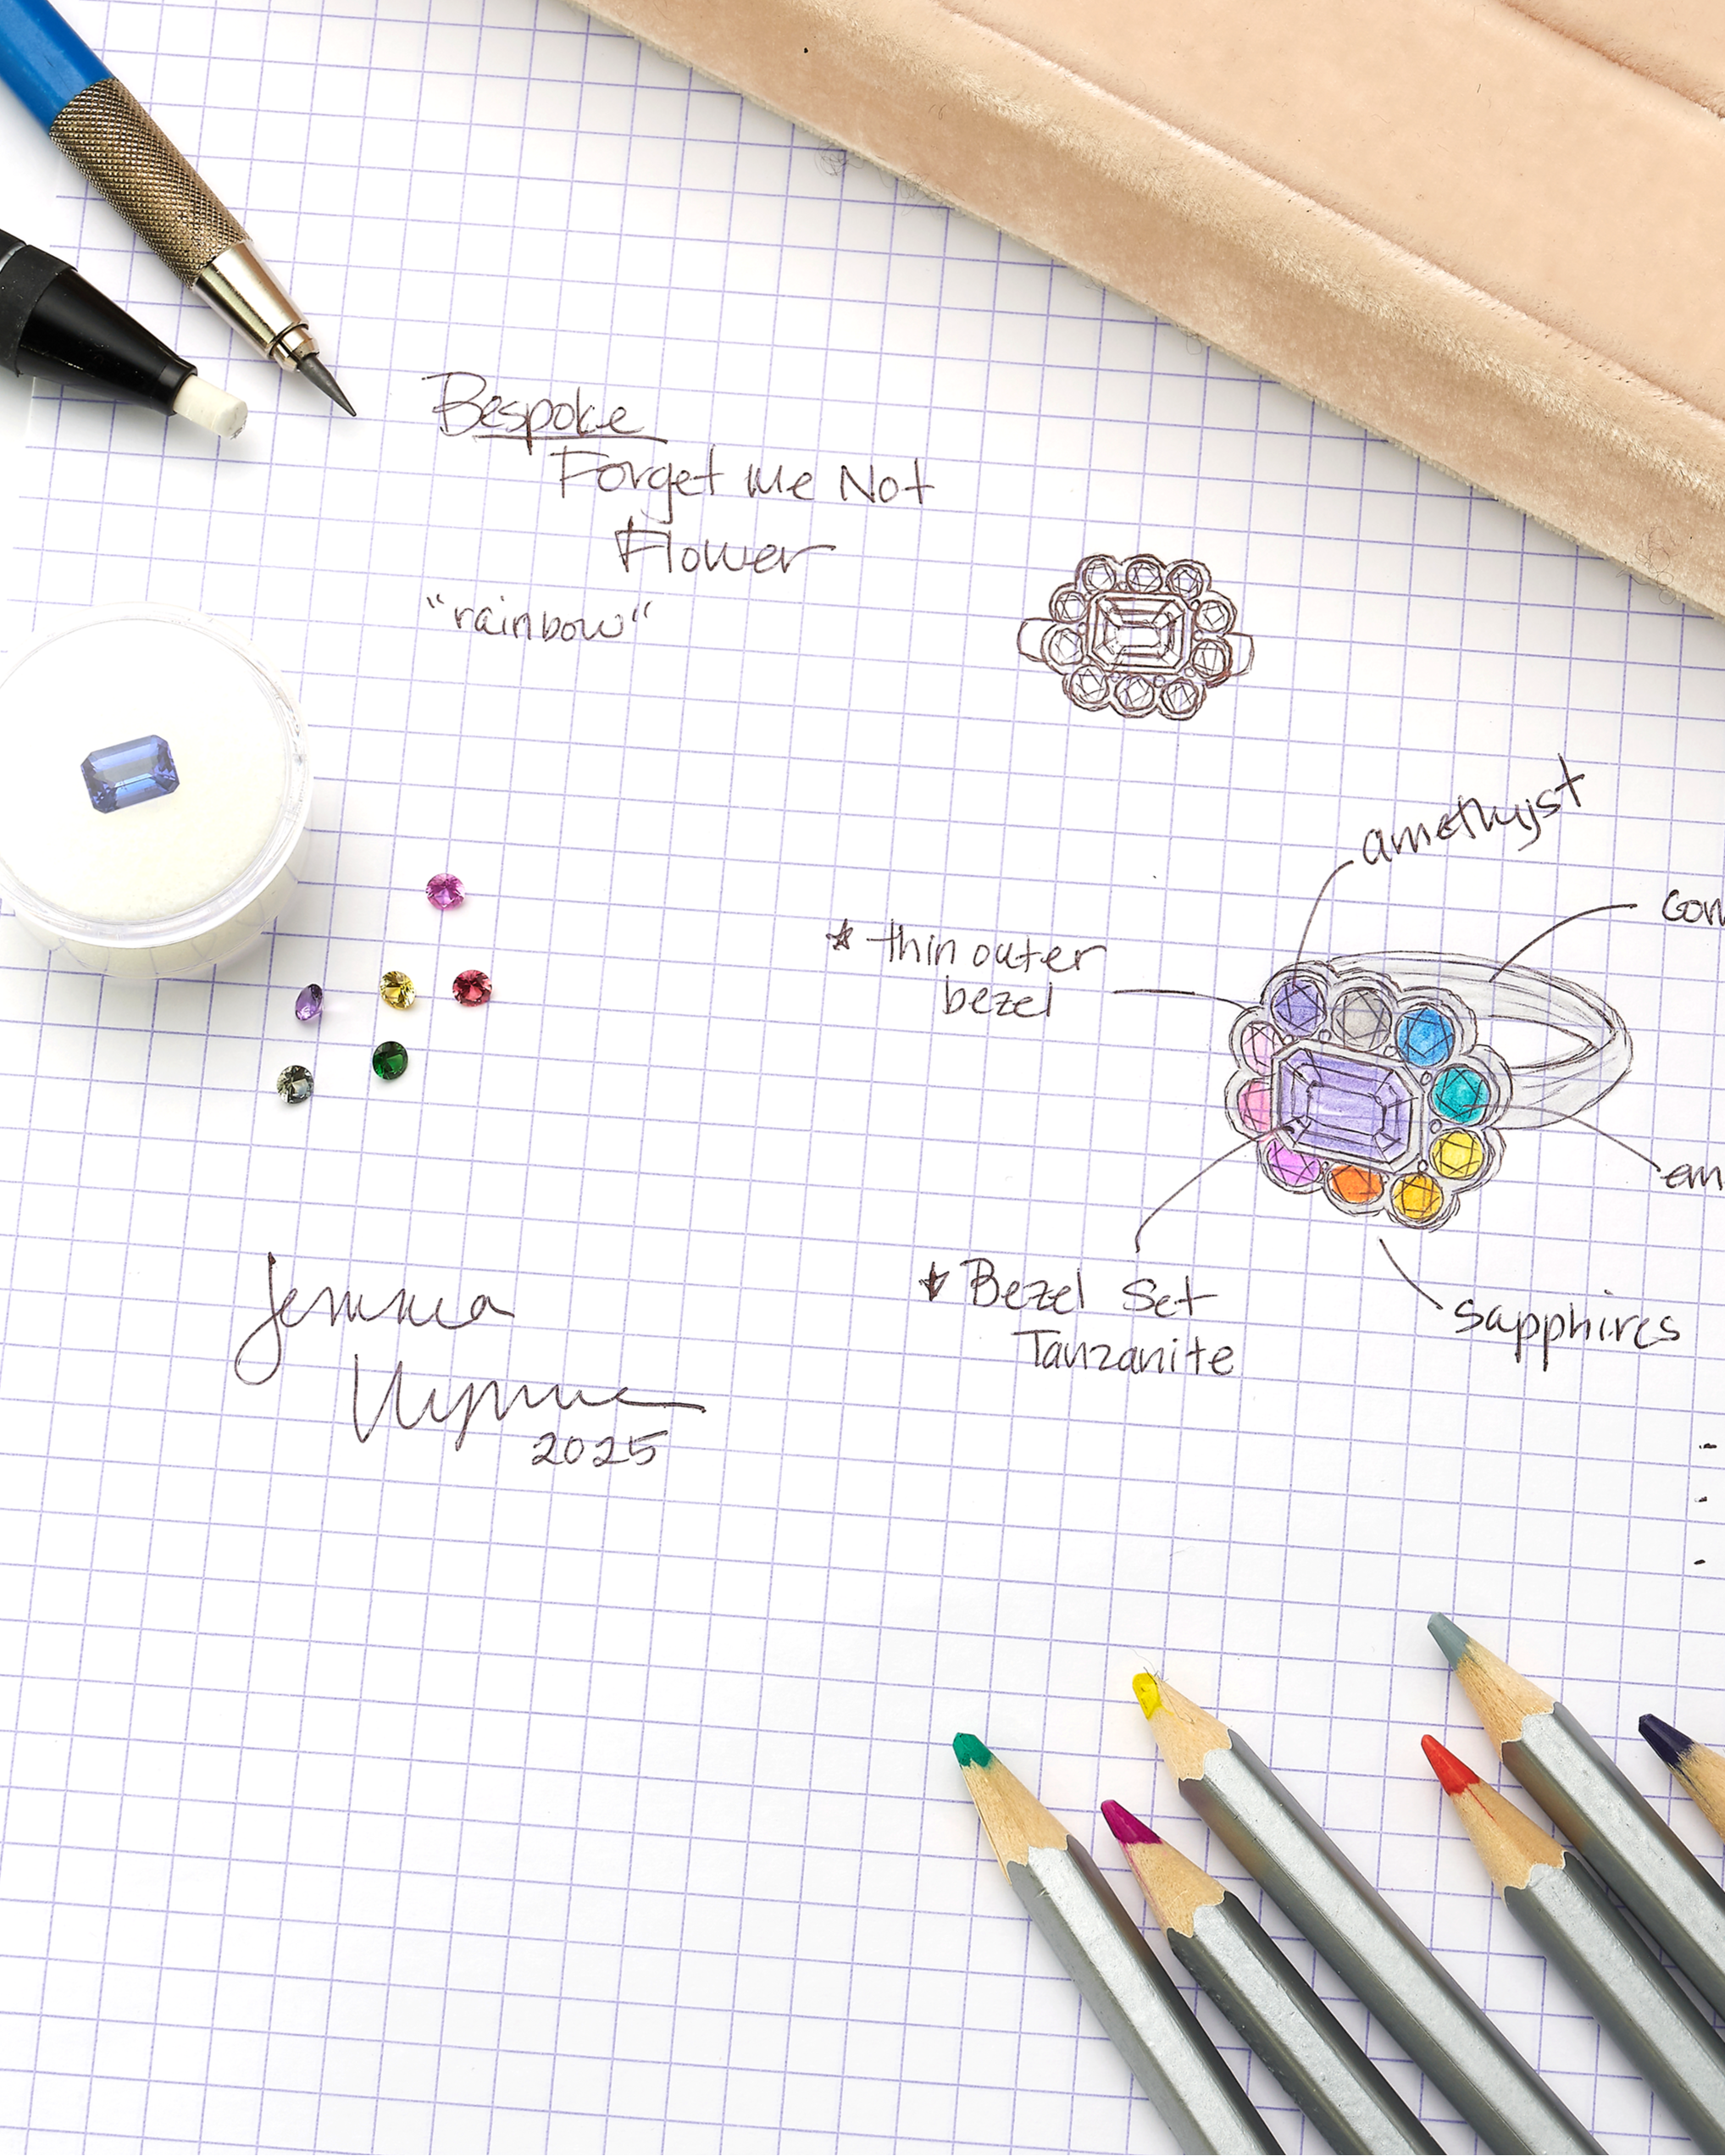 Bespoke
Forget Me Not
Flower
"rainbow"
amethyst
* thin outer
bezel
* Bezel Set
Tanzanite
sapphires
Jemma
Wynne
2025